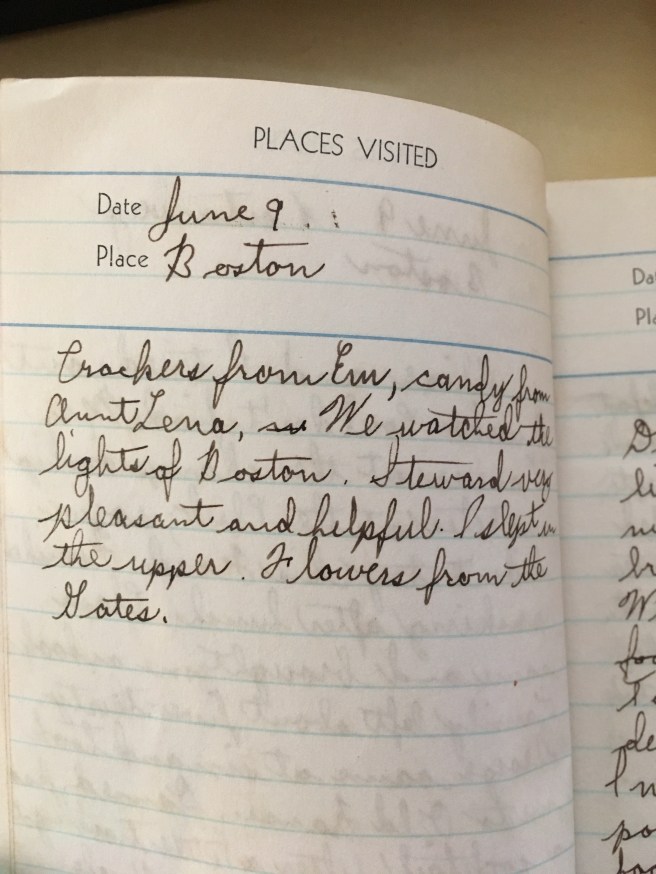 PLACES VISITED
Date June 9
Place Boston
Crackers from Em, candy from
Aunt Lena, We watched the
lights of Boston. Steward very
pleasant and helpful. I slept in
the upper. Flowers from the
Gates.
Da
Pla
D
li
m
br
W
foo
T
de
I n
po